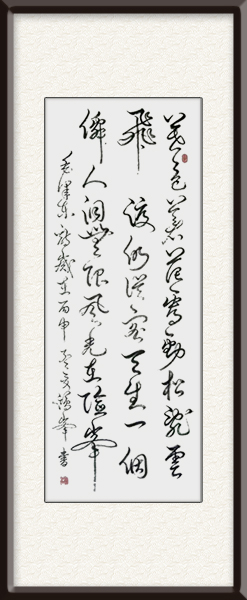 暮色蒼茫看勁松亂雲
飛渡仍從容天生一個
僊人洞無限風光在險峯
毛澤東詩歲在丙申峯書